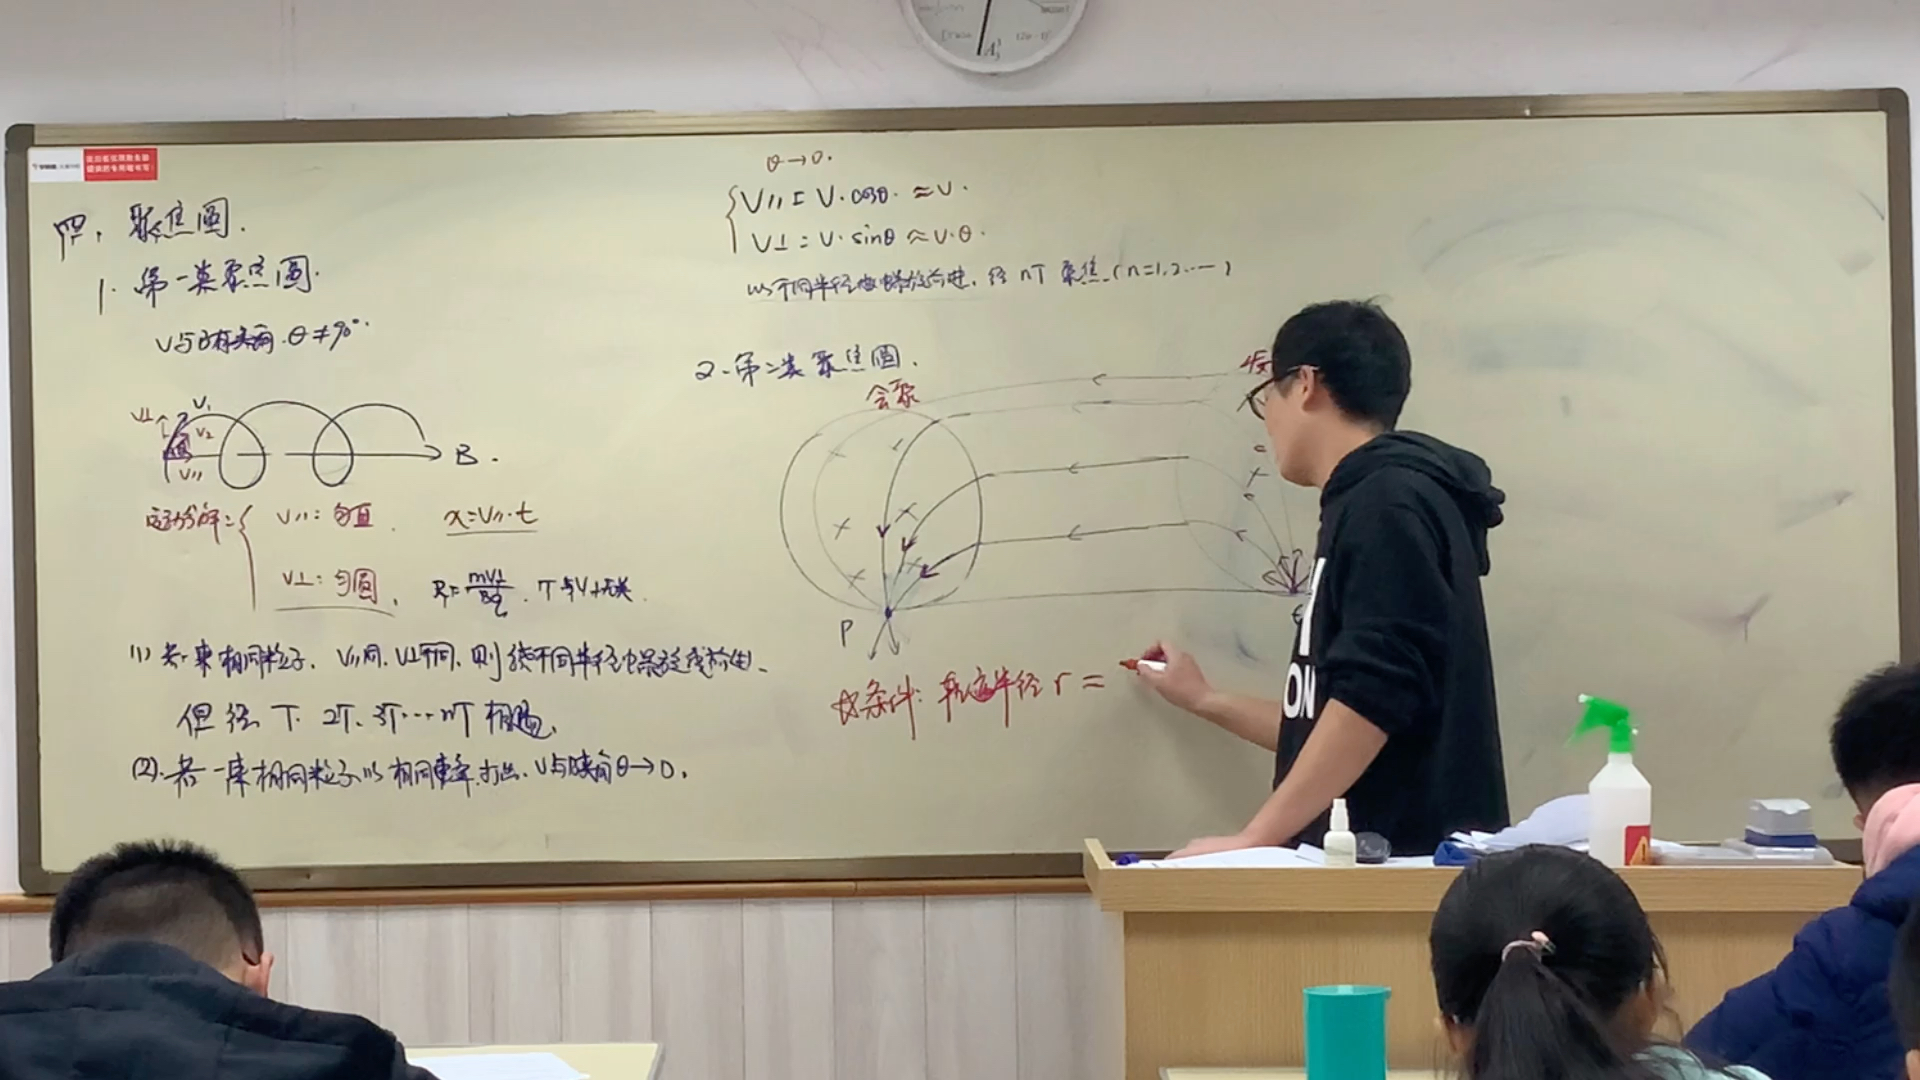 四、聚焦圆.
1. 第一类聚焦圆.
V与B有夹角.θ≠90°.
V⊥ V₁
V₂
V//
B.
运动分解: V//: 匀直. x=V//·t
V⊥: 匀圆, R=mV⊥/Bq. T与V⊥无关.
(1) 若一束相同粒子、V//同、V⊥不同、则绕不同半径螺旋线前进、
但经 T、2T、3T…nT 相遇.
(2).若一束相同粒子以相同速率打出、V与B夹角θ→0.
θ→0.
V//=V·cosθ.≈V.
V⊥=V·sinθ≈V·θ.
以不同半径做螺旋前进, 经 nT 聚焦.(n=1,2……)
2.第二类聚焦圆.
会聚
P
条件: 轨道半径 r =
ON